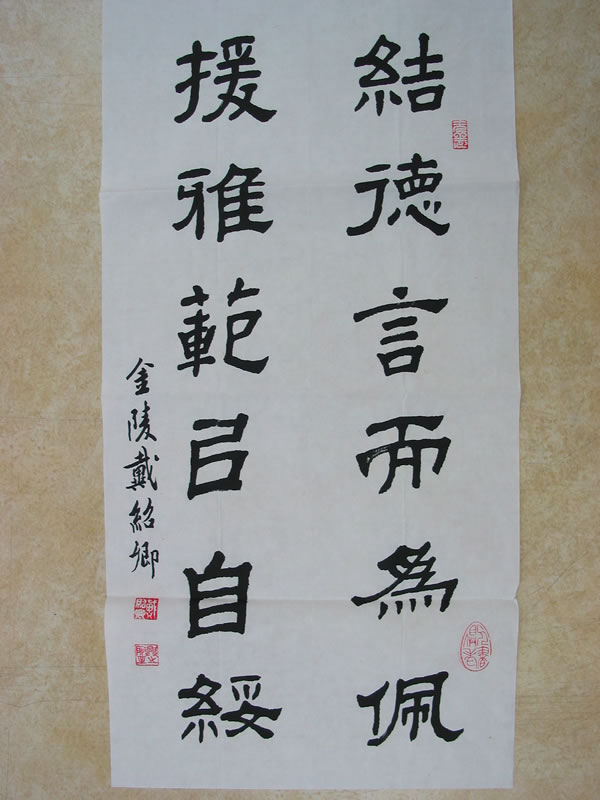 結德言而為佩
援雅範㠯自綏
金陵戴紹卿